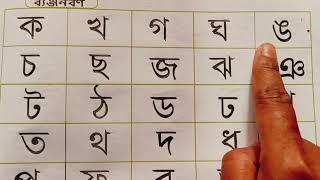 ব্যঞ্জনবর্ণ
ক খ গ ঘ ঙ
চ ছ জ ঝ ঞ
ট ঠ ড ঢ
ত থ দ ধ
প ফ ব